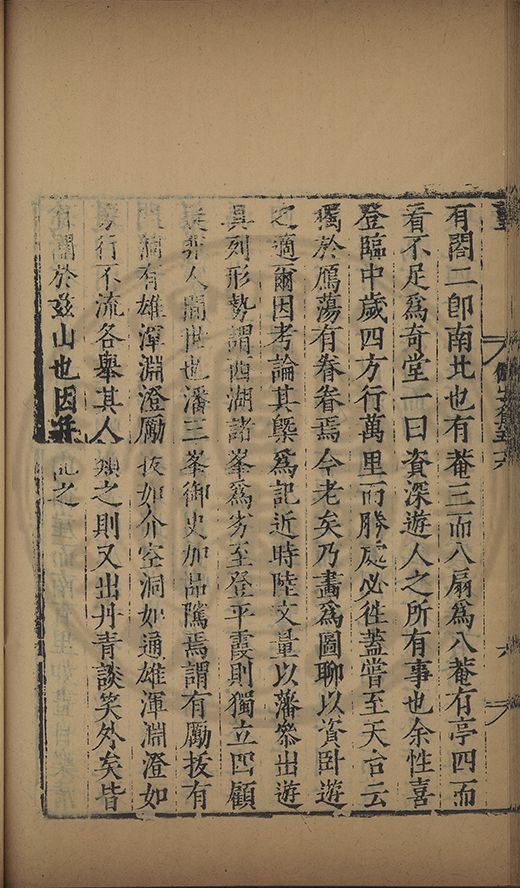 有閣二卽南北也有菴三而八扇爲八菴有亭四而
看不足爲奇堂一曰資深遊人之所有事也余性喜
登臨中歲四方行萬里而勝處必徃蓋嘗至天台云
獨於鴈蕩有眷眷焉今老矣乃畫爲圖聊以資卧遊
之適爾因考論其槩爲記近時陸文量以藩叅出遊
具列形勢謂西湖諸峯爲劣至登平霞則獨立四顧
弃人間世也潘三峯御史加品隲焉謂有厲拔有
洞有雄渾淵澄厲拔如介空洞如通雄渾淵澄如
行不流各舉其人類之則又出丹青談笑外矣皆
有關於兹山也因并記之
六